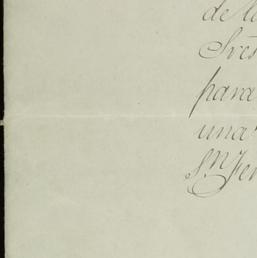 de l
Sres
para
una
Sn Fer